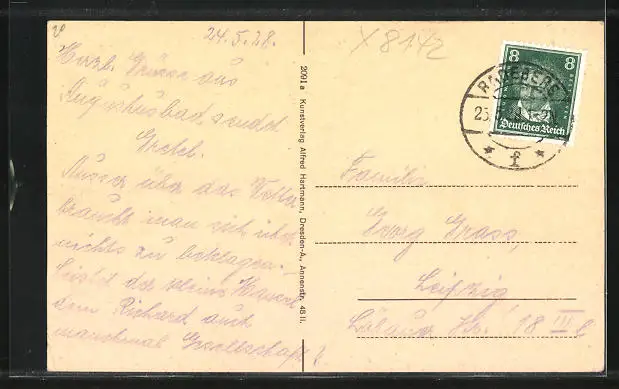 24.5.28.
X8172
Herzl. Grüsse aus
Augustusbad sendet
Gretel.
Ausser über das Wetter
braucht man sich über
nichts zu beklagen.
Leistet der kleine
dem Richard auch
manchmal Gesellschaft?
2091a Kunstverlag Alfred Hartmann, Dresden-A., Annenstr. 48 II.
8 8
Deutsches Reich
RADEBERG
f
Familie
Georg Grass,
Leipzig
Löbauer Str. 18 III